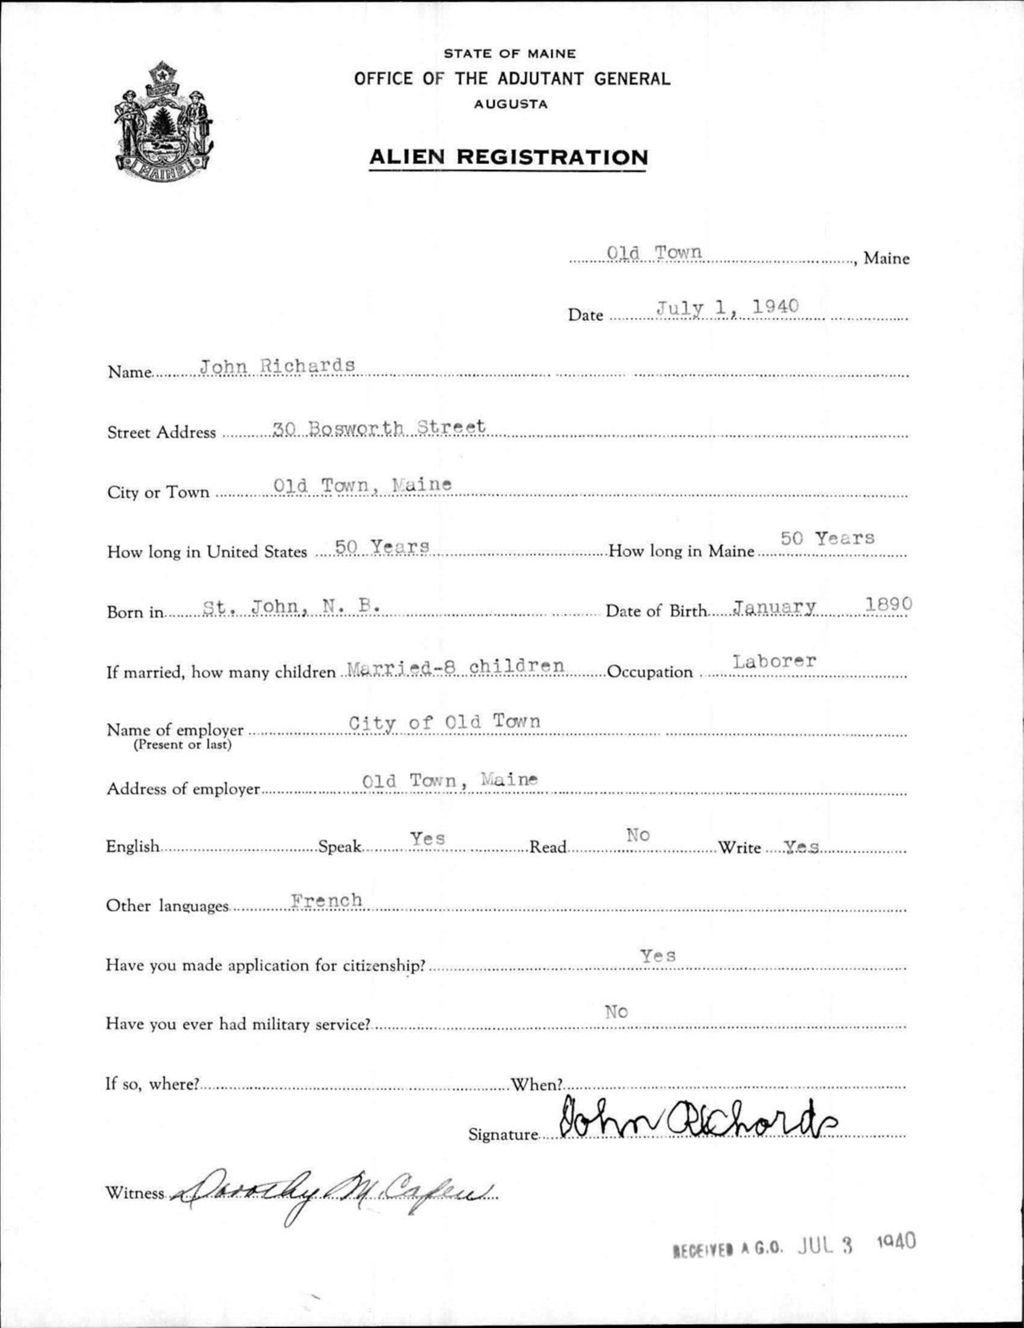 STATE OF MAINE
OFFICE OF THE ADJUTANT GENERAL
AUGUSTA
ALIEN REGISTRATION
MAINE
Old Town, Maine
Date July 1, 1940
Name John Richards
Street Address 30 Bosworth Street
City or Town Old Town, Maine
How long in United States 50 Years How long in Maine 50 Years
Born in St. John, N. B. Date of Birth January 1890
If married, how many children Married-8 children Occupation Laborer
Name of employer City of Old Town
(Present or last)
Address of employer Old Town, Maine
English Speak Yes Read No Write Yes
Other languages French
Have you made application for citizenship? Yes
Have you ever had military service? No
If so, where? When?
Signature John Richards
Witness Dorothy M. Capen
RECEIVED A.G.O. JUL 3 1940